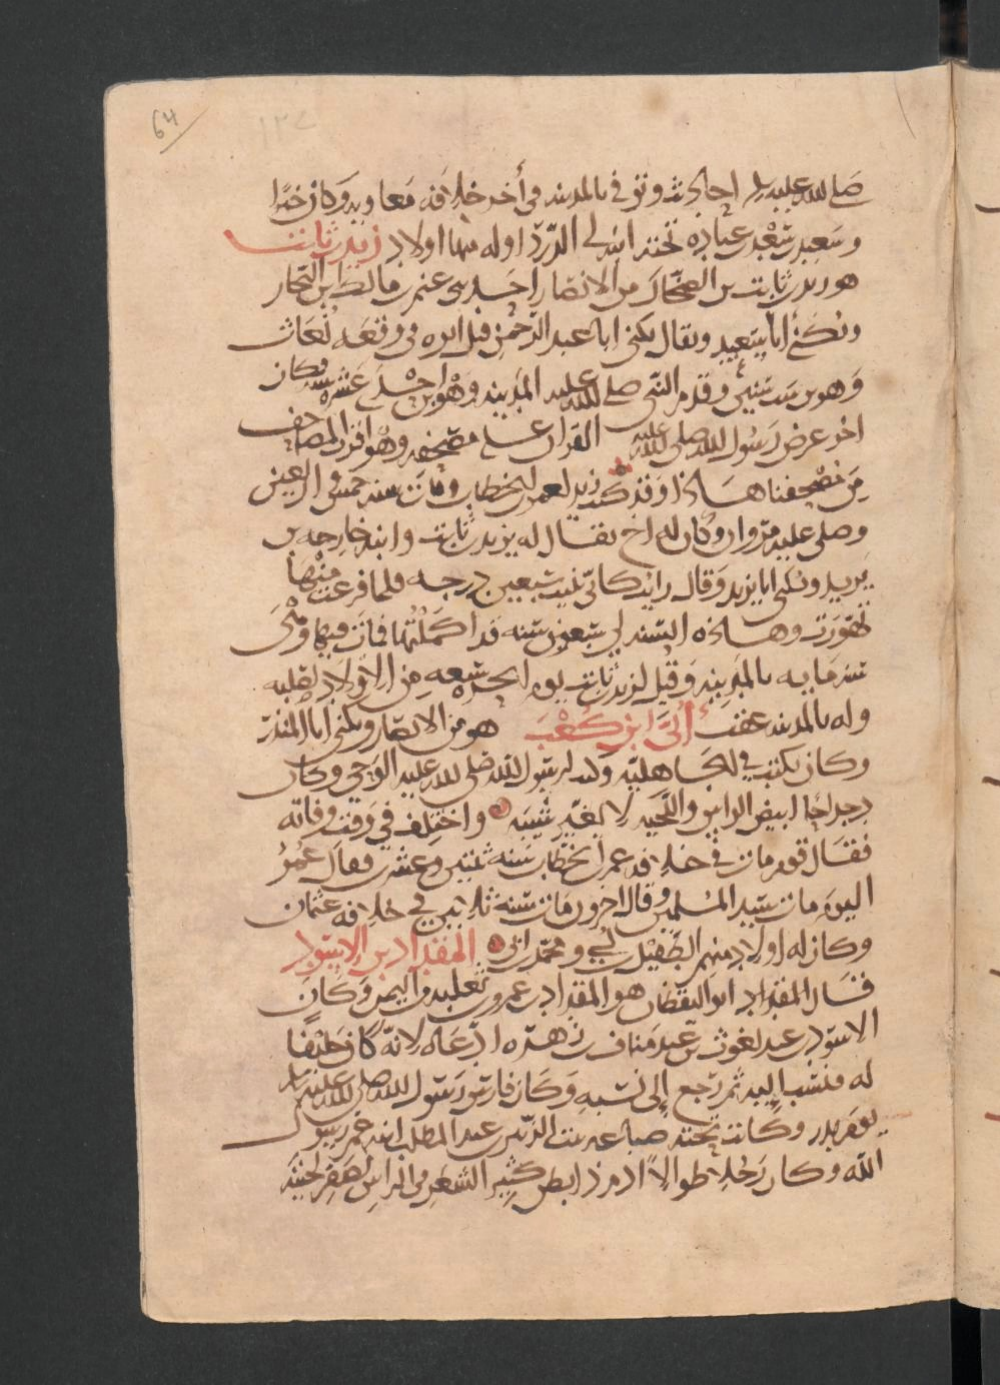 64
١٢٧
صلى الله عليه وسلم احاديث وتوفى بالمدينه في أخر خلافة معاويه وكان خيرا
وسعيد بن سعد بن عباده تحته ابنه لابي الدردا وله منها اولاد زيد بن ثابت
هو زيد بن ثابت بن الضحاك من الانصار احد بني غنم بن مالك بن النجار
ويكنى أبا سعيد ويقال يكنى ابا عبد الرحمن قتل ابوه في وقعه بعاث
وهو بن ست سنين وقدم النبي صلى الله عليه المدينه وهو بن احدى عشره سنه وكان
اخر عرض رسول الله صلى الله عليه القران على مصحفه وهو اقرب المصاحف
من مصحفنا هذا وقد كتب زيد لعمر بن الخطاب ومات سنه خمس واربعين
وصلى عليه مروان وكان له اخ يقال له يزيد بن ثابت وابنه خارجه بن
زيد ويكنى ابا يزيد وقال رايت كاني بنيت سبعين درجه فلما فرغت منها
تهورت وهذه السنه لي سبعون سنه قد اكملتها فمات فيها وهي
سنه مايه بالمدينه وقيل لزيد بن ثابت يوم الحره سبعه من الاولاد لصلبه
وله بالمدينه عقب أبي ابن كعب هو من الانصار ويكنى ابا المنذر
وكان يكتب في الجاهليه وكتب لرسول الله صلى الله عليه الوحي وكان
دحداحا ابيض الراس واللحيه لا يغير شيبه واختلف في وقت وفاته
فقال قوم مات في خلافة عمر بن الخطاب سنه ثنتين وعشرين وقال عمر
اليوم مات سيد المسلمين وقال اخرون مات سنة ثلاثين في خلافة عثمان
وكان له اولاد منهم الطفيل بن ابي ومحمد بن ابي المقداد بن الاسود
قال المقداد ابو اليقظان هو المقداد بن عمرو بن ثعلبه من اليمن وكان
الاسود بن عبد يغوث بن عبد مناف بن زهره ادعاه لانه كان حليفا
له فنسب إليه ثم رجع إلى نسبه وكان فارس رسول الله صلى الله عليه وسلم
يوم بدر وكانت تحته ضباعه بنت الزبير بن عبد المطلب ابنه عم رسول
الله وكان رجلا طوالا ادم ذا بطن كثير الشعر في الراس يصفر لحيته